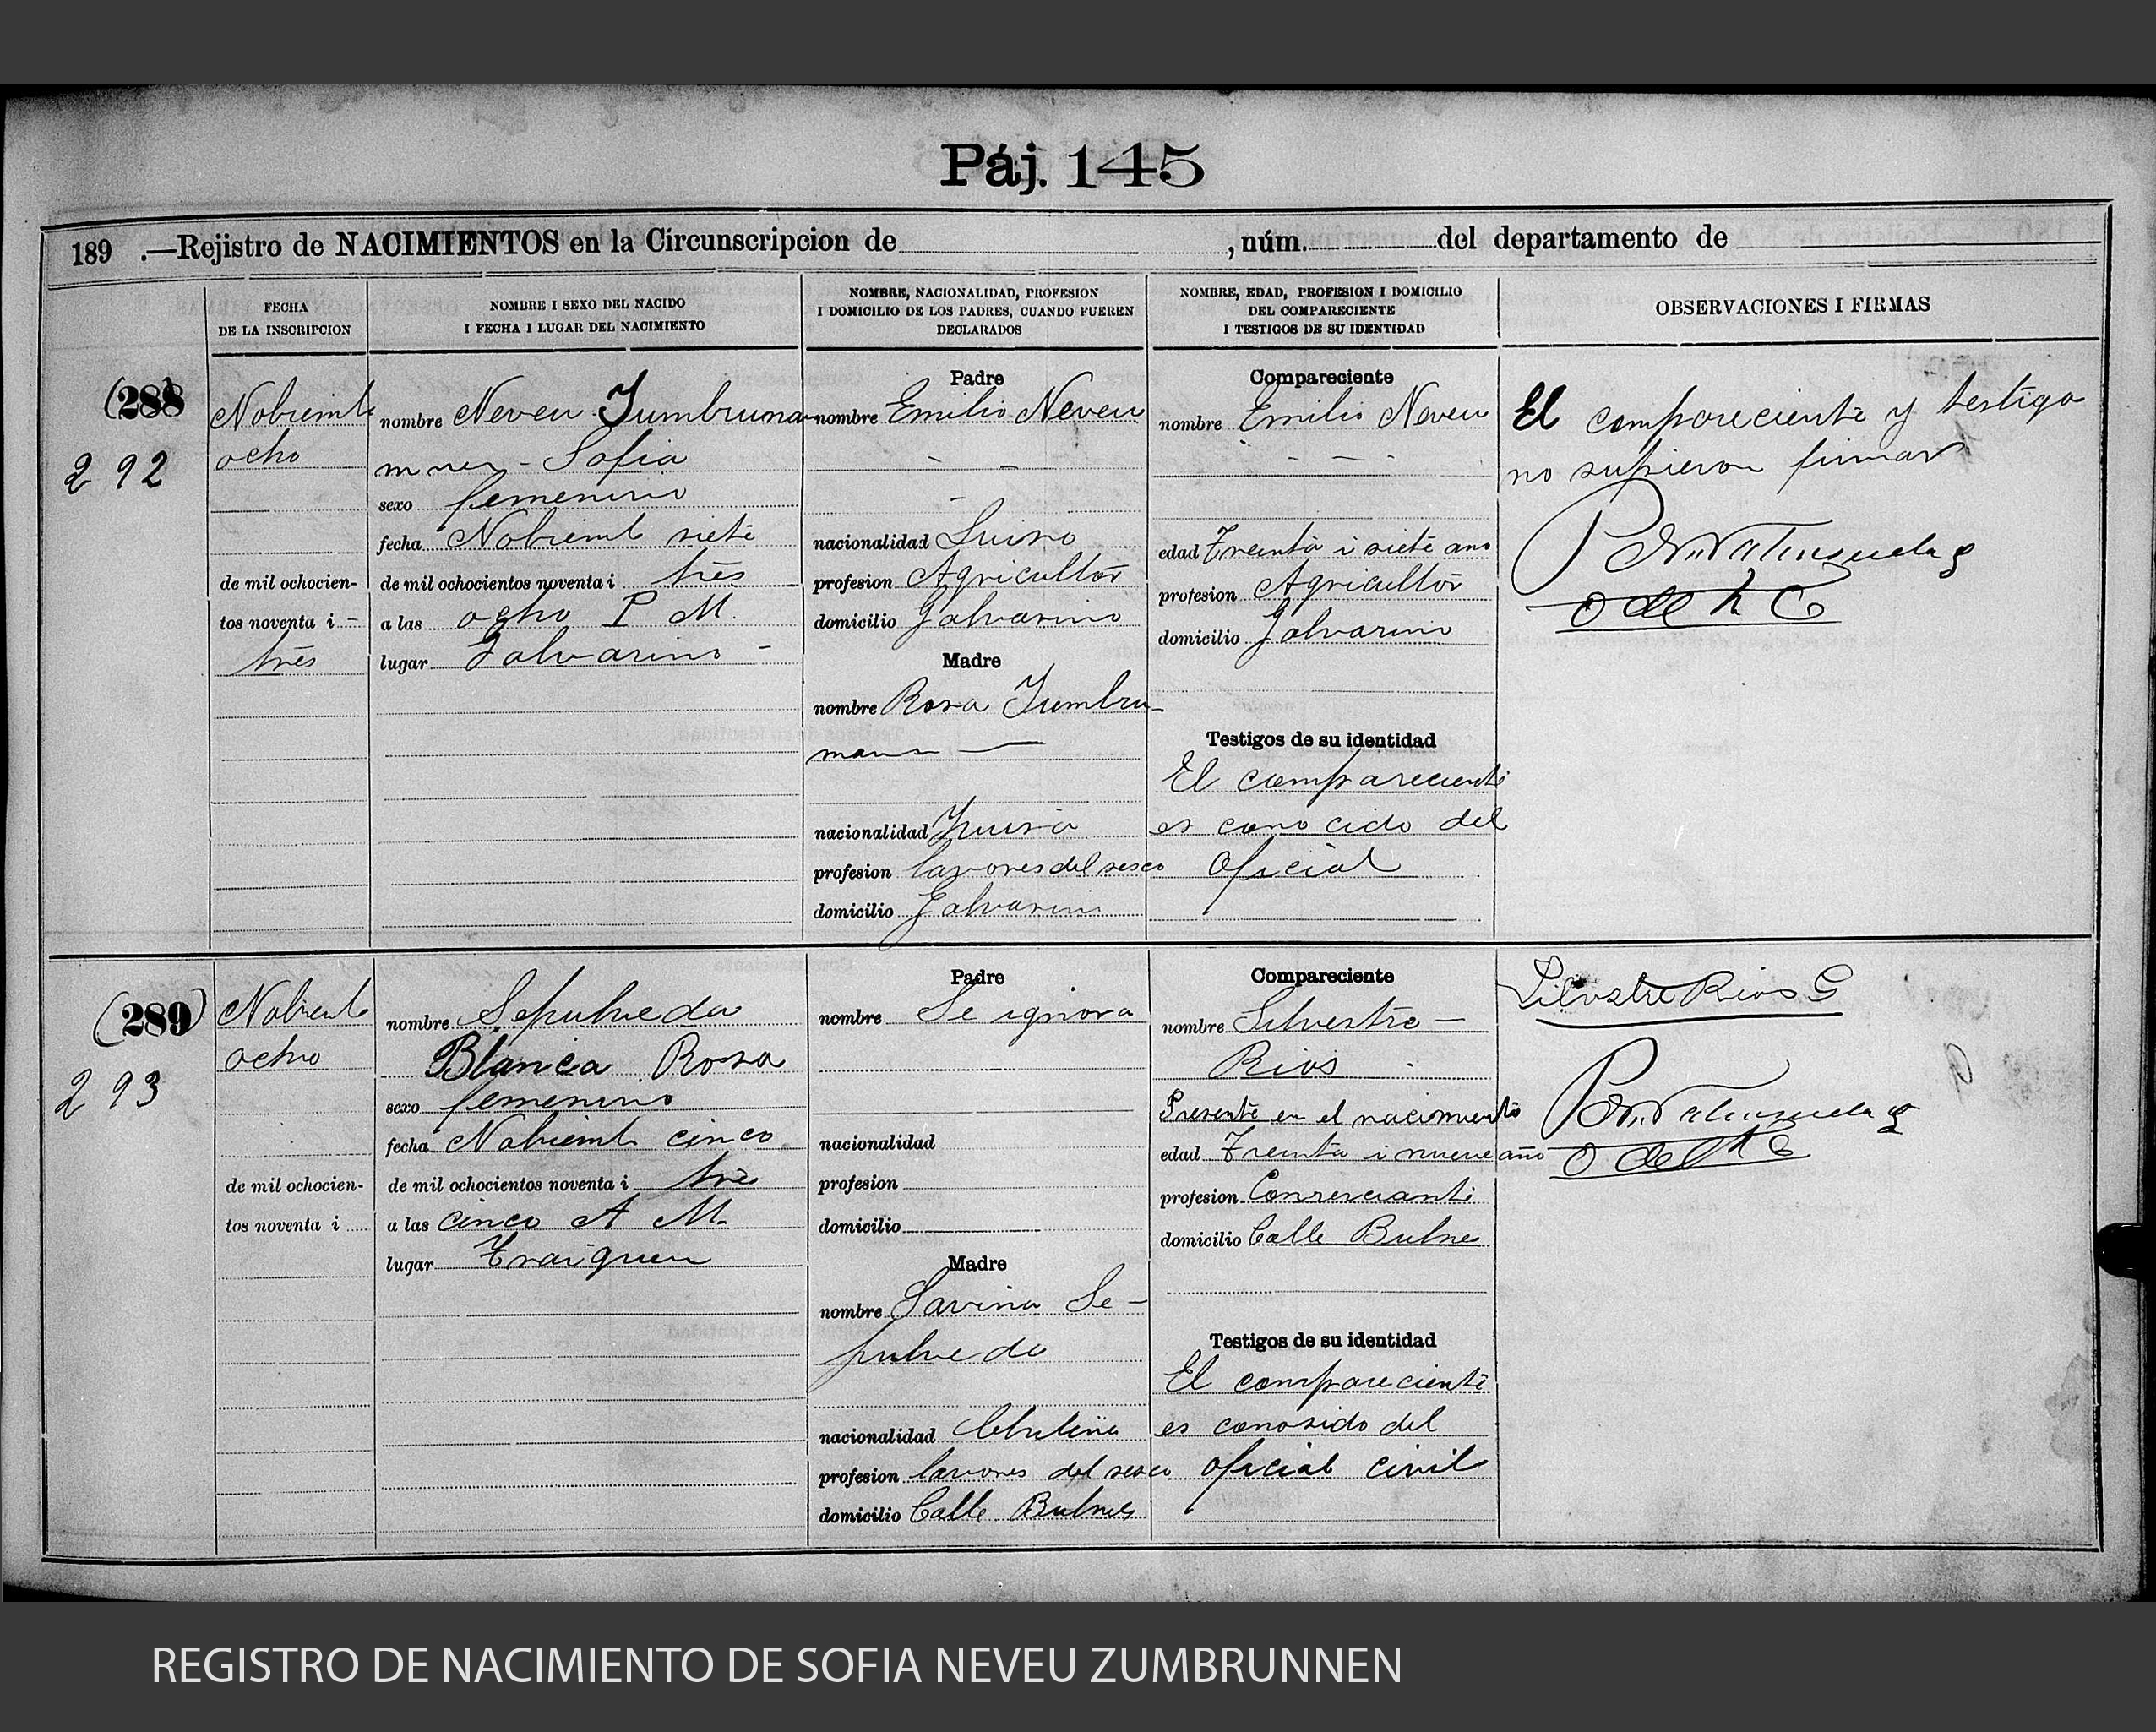 Páj. 145
189 .—Rejistro de NACIMIENTOS en la Circunscripcion de , núm. del departamento de
FECHA
DE LA INSCRIPCION
NOMBRE I SEXO DEL NACIDO
I FECHA I LUGAR DEL NACIMIENTO
NOMBRE, NACIONALIDAD, PROFESION
I DOMICILIO DE LOS PADRES, CUANDO FUEREN
DECLARADOS
NOMBRE, EDAD, PROFESION I DOMICILIO
DEL COMPARECIENTE
I TESTIGOS DE SU IDENTIDAD
OBSERVACIONES I FIRMAS
(288
292
Nobiemb
ocho
de mil ochocien-
tos noventa i -
tres
nombre Neveu Zumbruna
Sofia
sexo femenino
fecha Nobiemb siete
de mil ochocientos noventa i tres
a las ocho P M.
lugar Galvarino -
Padre
nombre Emilio Neveu
nacionalidad Suiso
profesion Agricultor
domicilio Galvarino
Madre
nombre Rosa Zumbru-
mana
nacionalidad Zuisa
profesion lavores del secso
domicilio Galvarino
Compareciente
nombre Emilio Neveu
edad Treinta i siete ano
profesion Agricultor
domicilio Galvarino
Testigos de su identidad
El compareciente
es cono cido del
Oficial
El compareciente y testigo
no supieron firmar
O del R C
(289)
293
Nobiemb
ocho
de mil ochocien-
tos noventa i
nombre Sepulveda
Blanca Rosa
sexo femenino
fecha Nobiemb cinco
de mil ochocientos noventa i tres
a las cinco A M.
lugar Traiguen
Padre
nombre Se ignora
nacionalidad
profesion
domicilio
Madre
nombre Savina Se-
pulveda
nacionalidad Chilena
profesion lavores del secso
domicilio Calle Bulnes
Compareciente
nombre Silvestre -
Rios
Presente en el nacimiento
edad Treinta i nueve año
profesion Comerciante
domicilio Calle Bulnes
Testigos de su identidad
El compareciente
es conosido del
oficial civil
Silvestre Rios G
O del R C
REGISTRO DE NACIMIENTO DE SOFIA NEVEU ZUMBRUNNEN